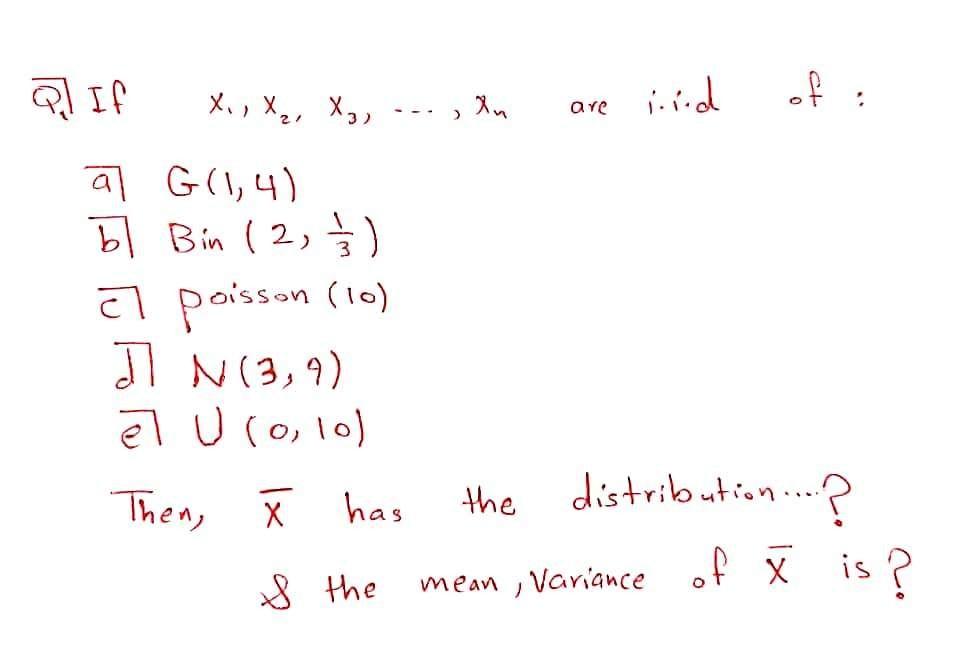 Q1 If X1, X2, X3, ---, Xn are i.i.d of :
a G(1,4)
b Bin (2, 1/3)
c poisson (10)
d N(3,9)
e U (0,10)
Then, X̅ has the distribution....?
& the mean, Variance of X̅ is?